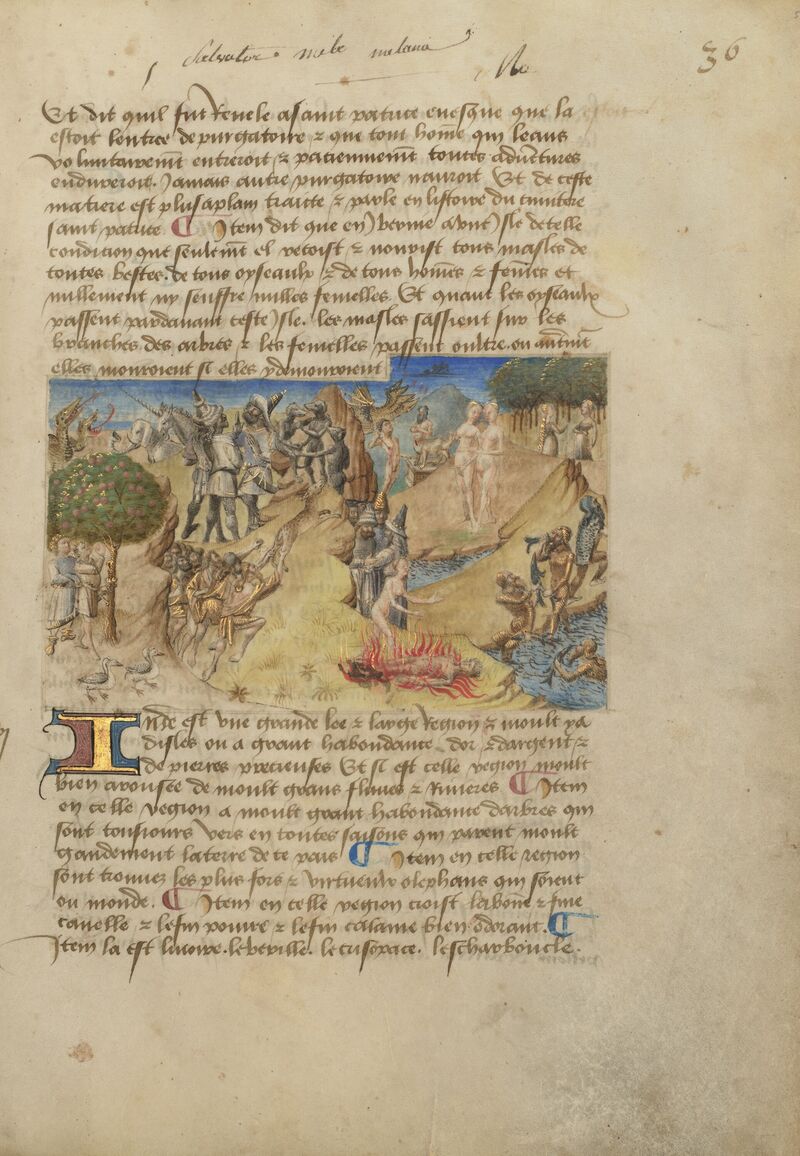 Salvator
36
Et dit quil fut Revele a saint patrice evesque que la
estoit lentree de purgatoire & que tout home qui leans
voluntairemt entreroit & paciemmemt toutes advetures
endureroit. Jamais autre purgatoire nauroit Et de ceste
matiere est plus aplain traicte & parle en listoire du
saint patrice ¶ Item dit que en yvernie a une ysle de telle
condicion que seulemt el recoist & nourist tous masles de
toutes bestes. de tous oyseaulx & de tous homes & femes et
nullement ny seuffre nulles femelles Et quant les oyseaulx
passent pardavant ceste ysle. les masles sassient sur les
branches des arbres & les femelles passent oultre. ou autremt
elles mouroient se elles y demouroient
Inde est une grande lee & large Region & moult y a
disles ou a grant habondance dor & dargent &
de pierres precieuses Et si est celle region moult
bien arousee de moult grans fluves & Rivieres ¶ Item
en celle region a moult grant habondance darbres qui
sont tousiours vers en toutes saisons qui parent moult
grandement la terre de ce pais ¶ Item en celle region
sont trouvez les plus fors & virtueulx olephans qui soient
ou monde. ¶ Item en celle region croist la bone & fine
canelle & le fin poivre & le fin calame bien odorant. ¶
Item la est livoire. le berille. le crisopace. lescharboucle.